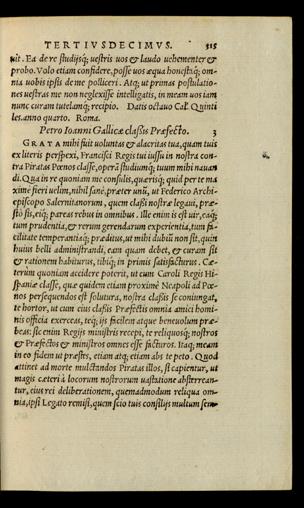 TERTIVSDECIMVS. 315
uit. Ea de re studijsq́; uestris uos & laudo uehementer &
probo. Volo etiam confidere, posse uos æqua honestaq́; om-
nia uobis ipsis de me polliceri. Atq; ut primas postulatio-
nes uestras me non neglexisse intelligatis, in meam uos iam
nunc curam tutelamq́; recipio. Datis octauo Cal. Quinti
les. anno quarto. Roma.
Petro Ioanni Gallicæ classis Præfecto. 3
GRATA mihi fuit uoluntas & alacritas tua, quam tuis
ex literis perspexi, Francisci Regis tui iussu in nostra con-
tra Piratas Pœnos classe, operā studiumq́; tuum mihi nauan
di. Qua in re quoniam me consulis, quærisq́; quid per te ma
ximè fieri uelim, nihil sanè, præter unū, ut Federico Archi-
episcopo Salernitanorum, quem classi nostræ legaui, præ-
sto sis, eiq; pareas rebus in omnibus. Ille enim is est uir, eaq́;
tum prudentia, & rerum gerendarum experientia, tum fa-
cilitate temperantiaq́; præditus, ut mihi dubiū non sit, quin
huius belli administrandi, eam quam debet, & curam sit
& rationem habiturus, tibiq́; in primis satisfacturus. Cæ-
terùm quoniam accidere poterit, ut cum Caroli Regis Hi-
spaniæ classe, quæ quidem etiam proximè Neapoli ad Pœ-
nos persequendos est solutura, nostra classis se coniungat,
te hortor, ut cum eius classis Præfectis omnia amici homi-
nis officia exerceas, teq́; ijs facilem atque beneuolum præ-
beas: sic enim Regijs ministris recepi, te reliquosq́; nostros
& Præfectos & ministros omnes esse facturos. Itaq; meam
in eo fidem ut præstes, etiam atq; etiam abs te peto. Quod
attinet ad morte mulctandos Piratas illos, si capientur, ut
magis cæteri à locorum nostrorum uastatione absterrean-
tur, eius rei deliberationem, quemadmodum reliqua om-
nia, ipsi Legato remisi, quem scio tuis consilijs multum sem-